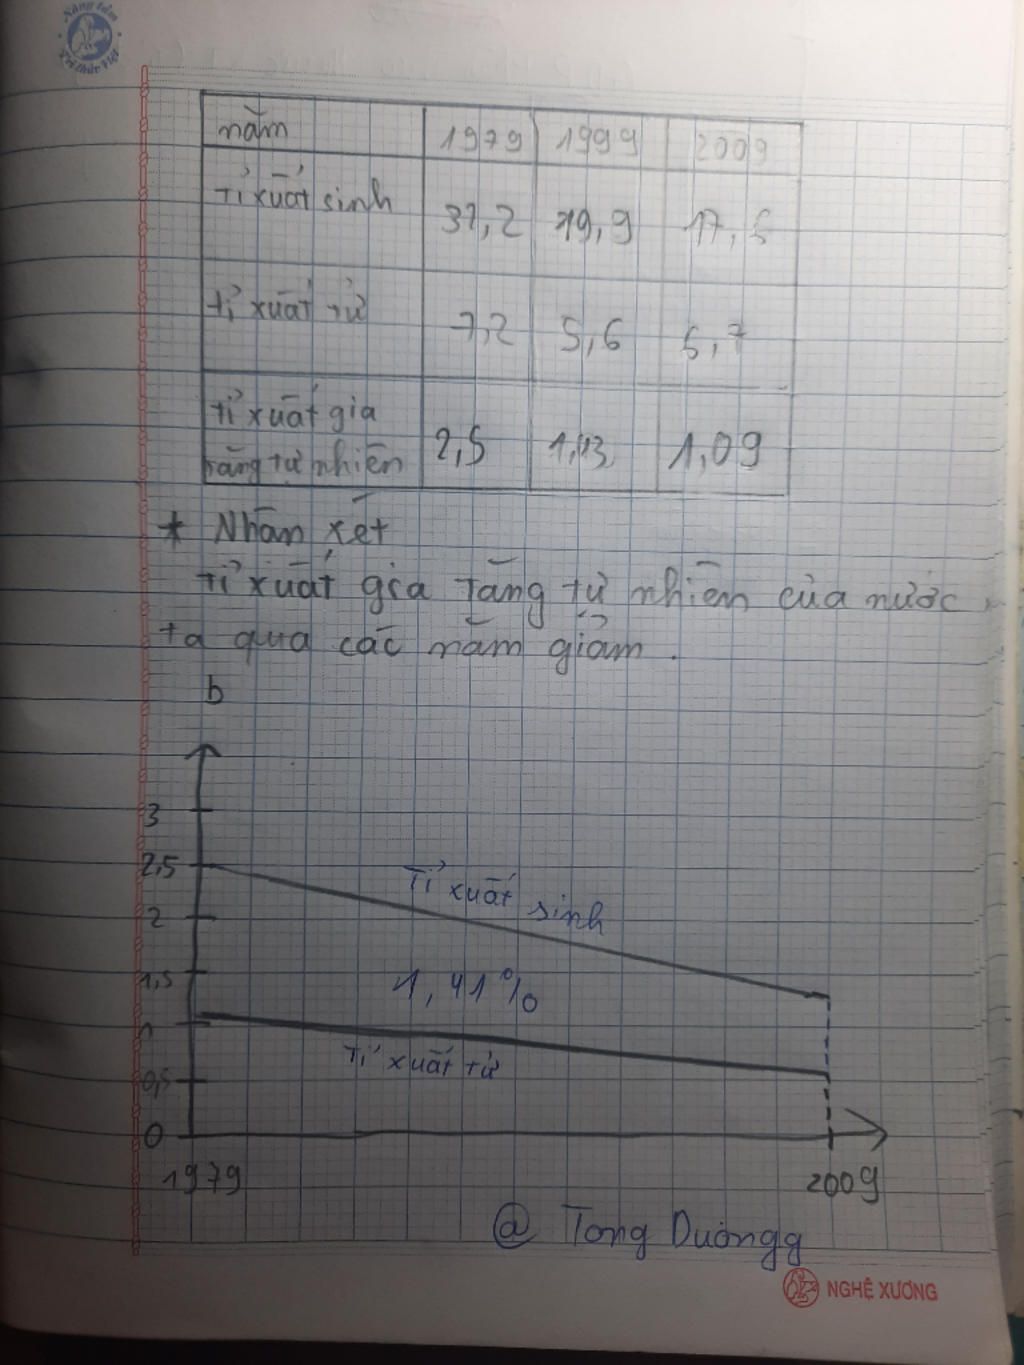 Nâng tầm
Tri thức Việt
năm 1979 1999 2009
tỉ xuất sinh 32,2 19,9 17,6
tỉ xuất tử 7,2 5,6 6,7
tỉ xuất gia
tăng tự nhiên 2,5 1,43 1,09
* Nhận xét
tỉ xuất gia tăng tự nhiên của nước
ta qua các năm giảm.
b
3
2,5
Tỉ xuất sinh
2
1,5
1,41%
1
Tỉ xuất tử
0,5
0
1979 2009
@ Tong Duongg
NGHỆ XƯƠNG